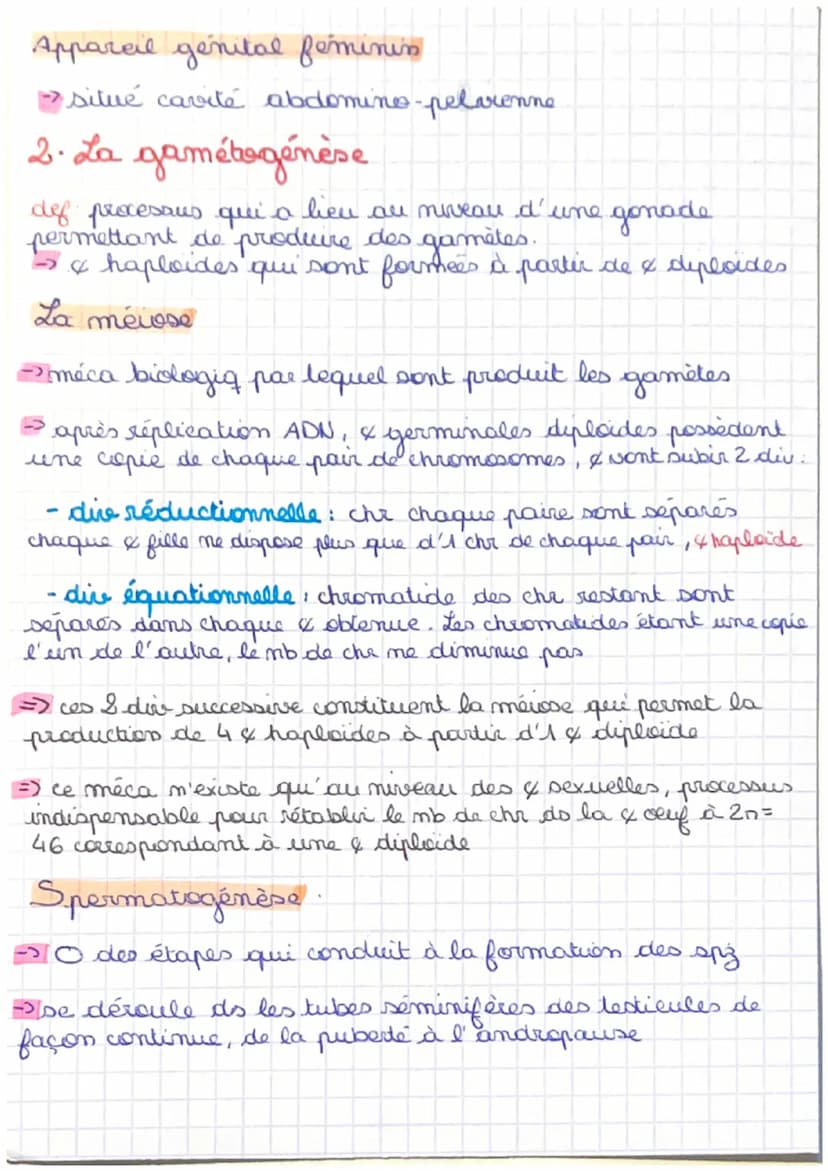 Appareil génital féminin
-> situé cavité abdomino-pelvienne
2. La gamétogénèse
def processus qui a lieu au niveau d'une gonade
permettant de produire des gamètes.
-> & haploïdes qui sont formées à partir de & diploïdes
La méiose
-> méca biologiq par lequel sont produit les gamètes
-> après réplication ADN, & germinales diploïdes possèdent
une copie de chaque pair de chromosomes, & vont subir 2 div :
- div réductionnelle : chr chaque paire sont séparés
chaque & fille ne dispose plus que d'1 chr de chaque pair, & haploïde
- div équationnelle : chromatide des chr restant sont
séparés dans chaque & obtenue. Les chromatides étant une copie
l'un de l'autre, le nb de chr ne diminue pas
=> ces 2 div successive constituent la méiose qui permet la
production de 4 & haploïdes à partir d'1 & diploïde
=> ce méca n'existe qu'au niveau des & sexuelles, processus
indispensable pour rétablir le nb de chr ds la & oeuf à 2n=
46 correspondant à une & diploïde
Spermatogénèse
-> O des étapes qui conduit à la formation des spz
-> se déroule ds les tubes séminifères des testicules de
façon continue, de la puberté à l'andropause